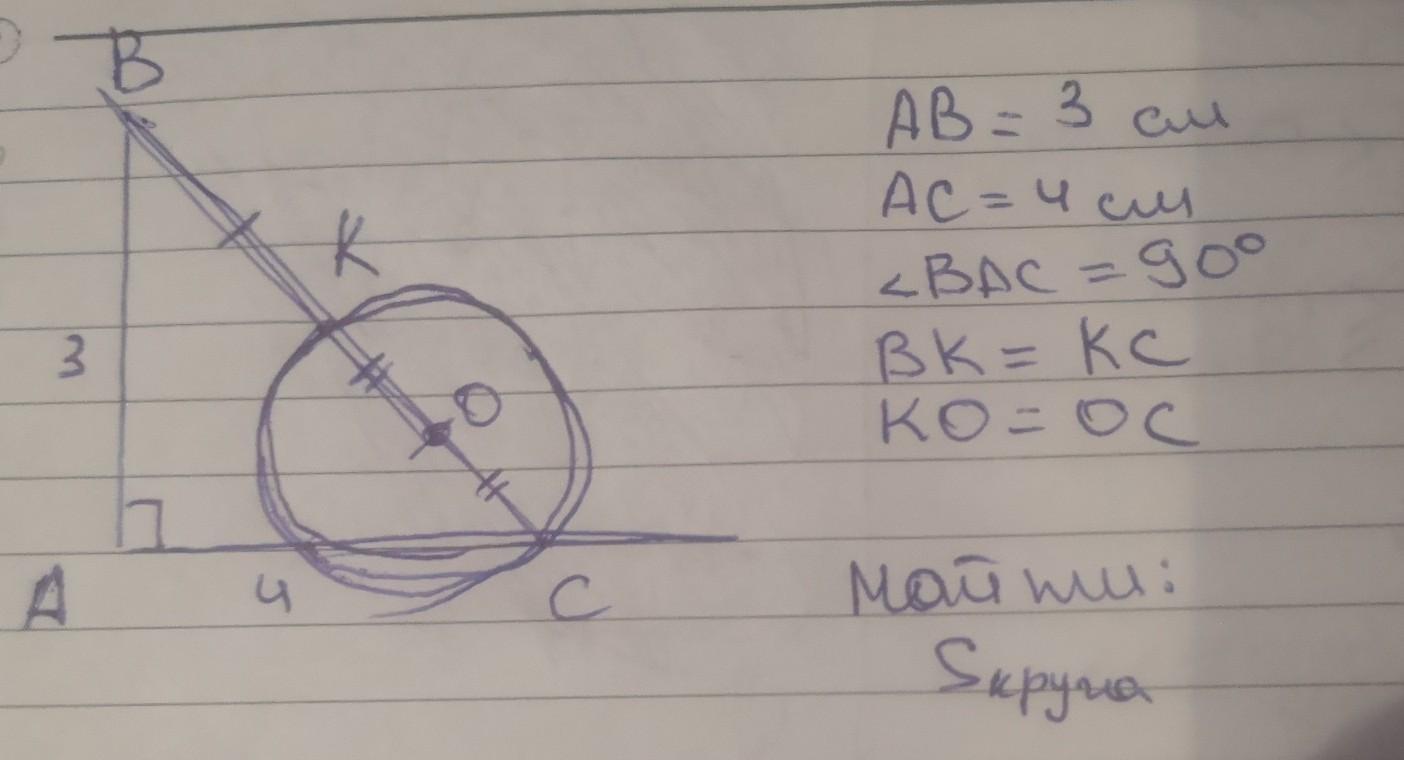 B
K
O
3
A
4
C
AB = 3 см
AC = 4 см
∠BAC = 90°
BK = KC
KO = OC
Найти:
Sкруга